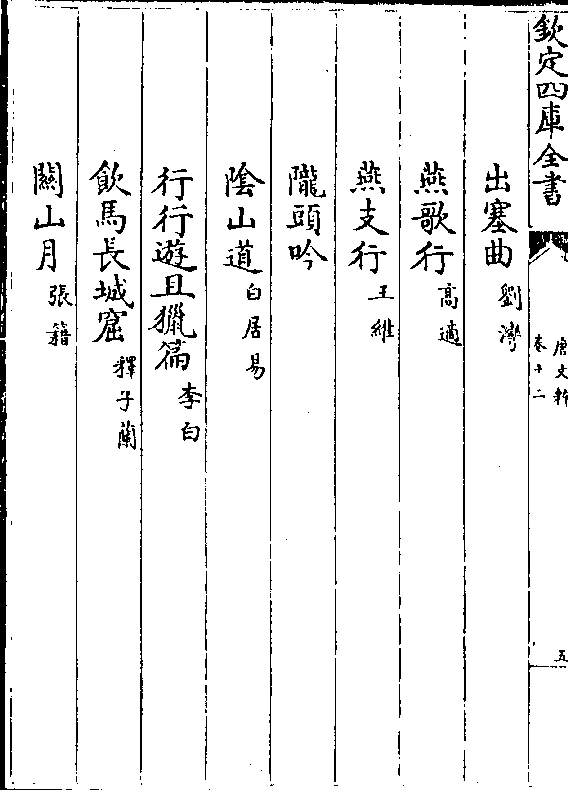 欽定四庫全書
唐文粹
卷十二
五
出塞曲 劉灣
燕歌行 高適
燕支行 王維
隴頭吟
陰山道 白居易
行行遊且獵篇 李白
飲馬長城窟 釋子蘭
關山月 張籍